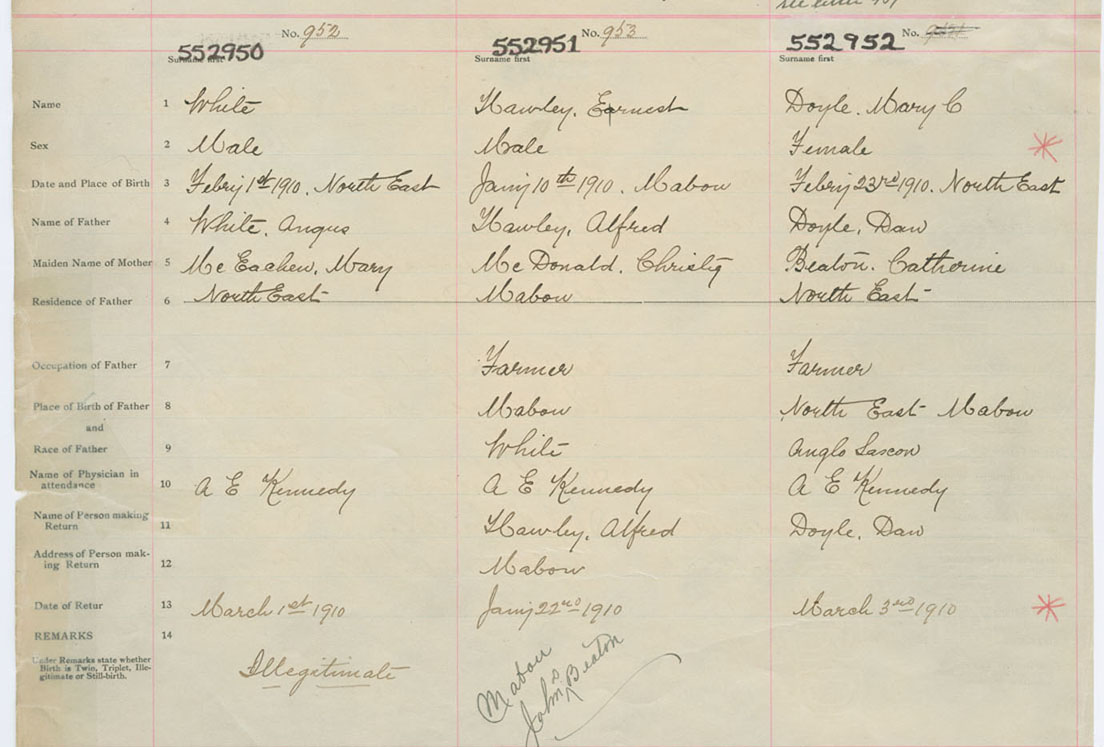 see entry
No. 952 No. 953 No.
552950 552951 552952
Surname first Surname first Surname first
Name 1 White Hawley, Earnest Doyle. Mary C
Sex 2 Male Male Female
Date and Place of Birth 3 Febry 1st 1910. North East Jany 10th 1910. Mabou Febry 23rd 1910. North East
Name of Father 4 White. Angus Hawley, Alfred Doyle, Dan
Maiden Name of Mother 5 Mc Eachen, Mary Mc Donald. Christy Beaton. Catherine
Residence of Father 6 North East Mabou North East
Occupation of Father 7 Farmer Farmer
Place of Birth of Father 8 Mabou North East Mabou
and
Race of Father 9 White Anglo Saxon
Name of Physician in
attendance 10 A E Kennedy A E Kennedy A E Kennedy
Name of Person making
Return 11 Hawley, Alfred Doyle, Dan
Address of Person mak-
ing Return 12 Mabou
Date of Retur 13 March 1st 1910 Jany 22nd 1910 March 3rd 1910
REMARKS 14
Under Remarks state whether
Birth is Twin, Triplet, Ille-
gitimate or Still-birth.
Illegitimate
Mabou
John S Beaton